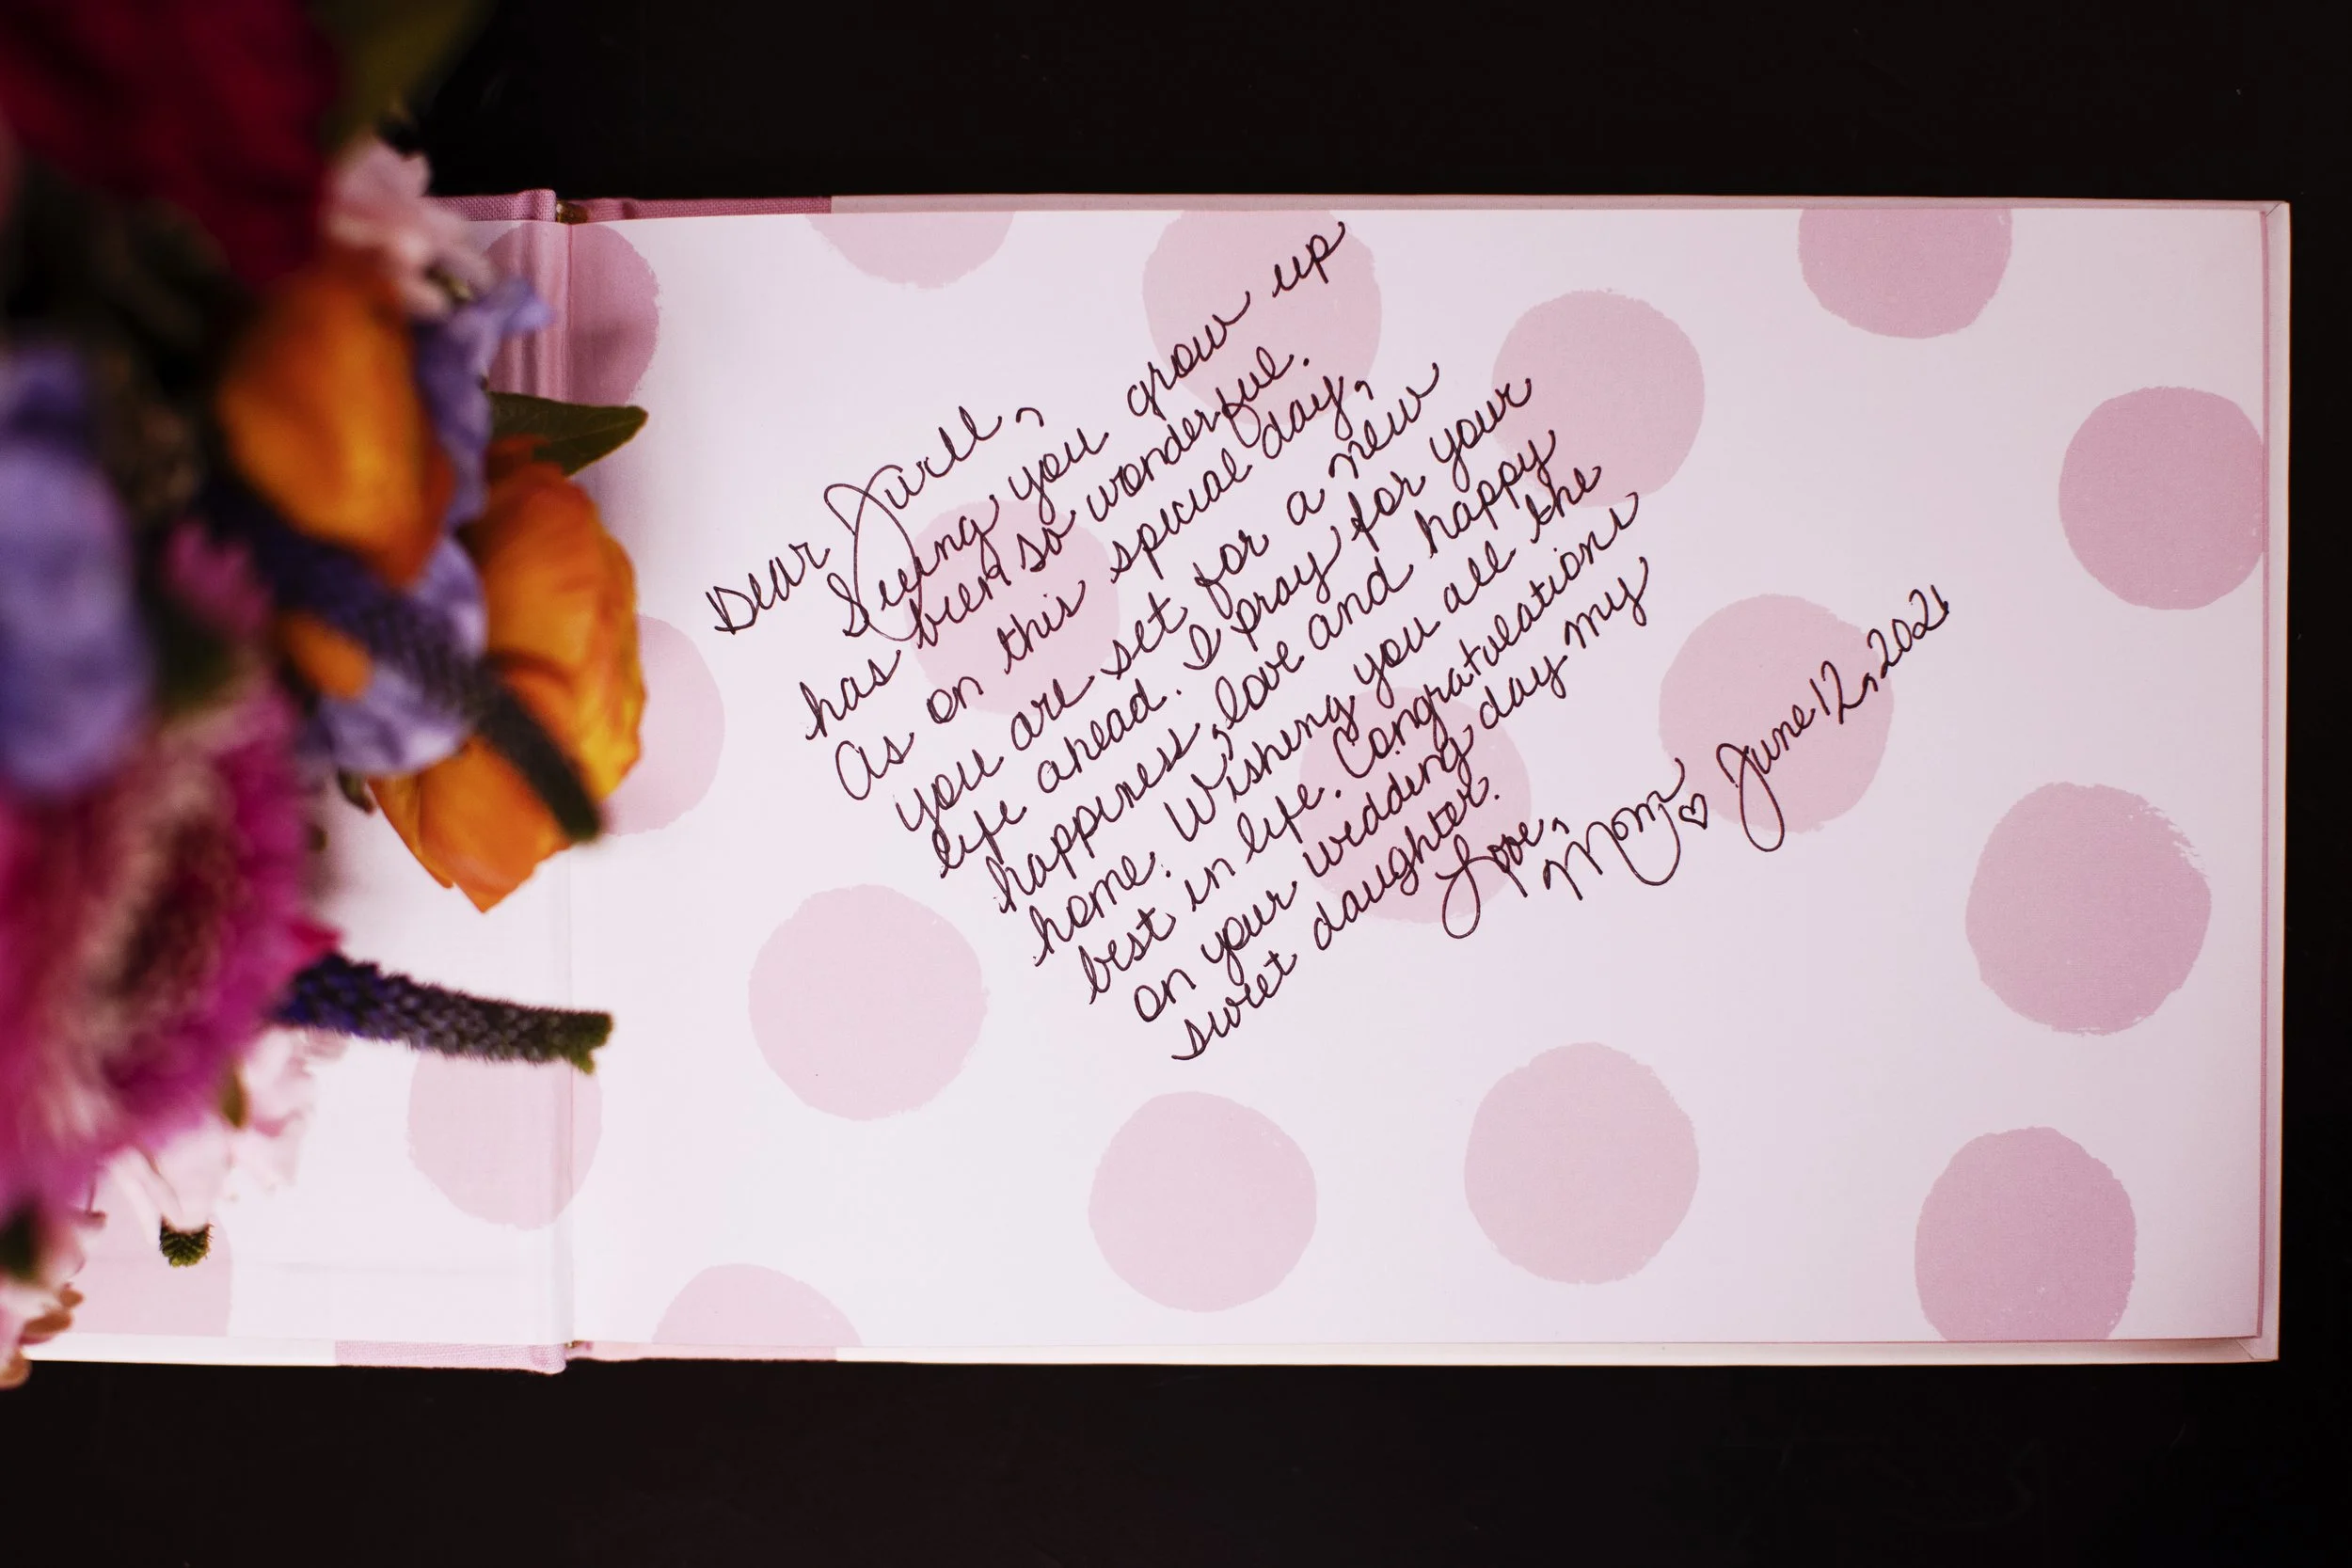 Dear Jurll,
Seeing you grow up
has been so wonderful.
As on this special day,
you are set for a new
life ahead. I pray for your
happiness, love and happy
home. Wishing you all the
best in life. Congratulations
on your wedding day my
sweet daughter.
Love,
Mom ♡ June 12, 2021